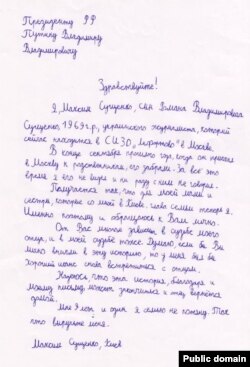 Президенту РФ
Путину Владимиру
Владимировичу
Здравствуйте!
Я, Максим Сущенко, сын Романа Владимировича
Сущенко, 1969 г.р., украинского журналиста, который
сейчас находится в СИЗО „Лефортово" в Москве.
В конце сентября прошлого года, когда он приехал
в Москву к родственникам, его забрали. За все это
время я его не видел и ни разу с ним не говорил.
Получается так, что для моей мамы и
сестры, которые со мной в Киеве, глава семьи теперь я.
Именно поэтому и обращаюсь к Вам лично.
От Вас многое зависит в судьбе моего
отца, и в моей судьбе тоже. Думаю, если бы Вы
лично вникли в эту историю, то у меня был бы
хороший шанс опять встретиться с отцом.
Надеюсь что эта история, благодаря и
моему письму, может закончиться и папа вернётся
домой.
Мне 9 лет и один я семью не потяну. Так
что выручите меня.
Максим Сущенко, Киев
Public domain